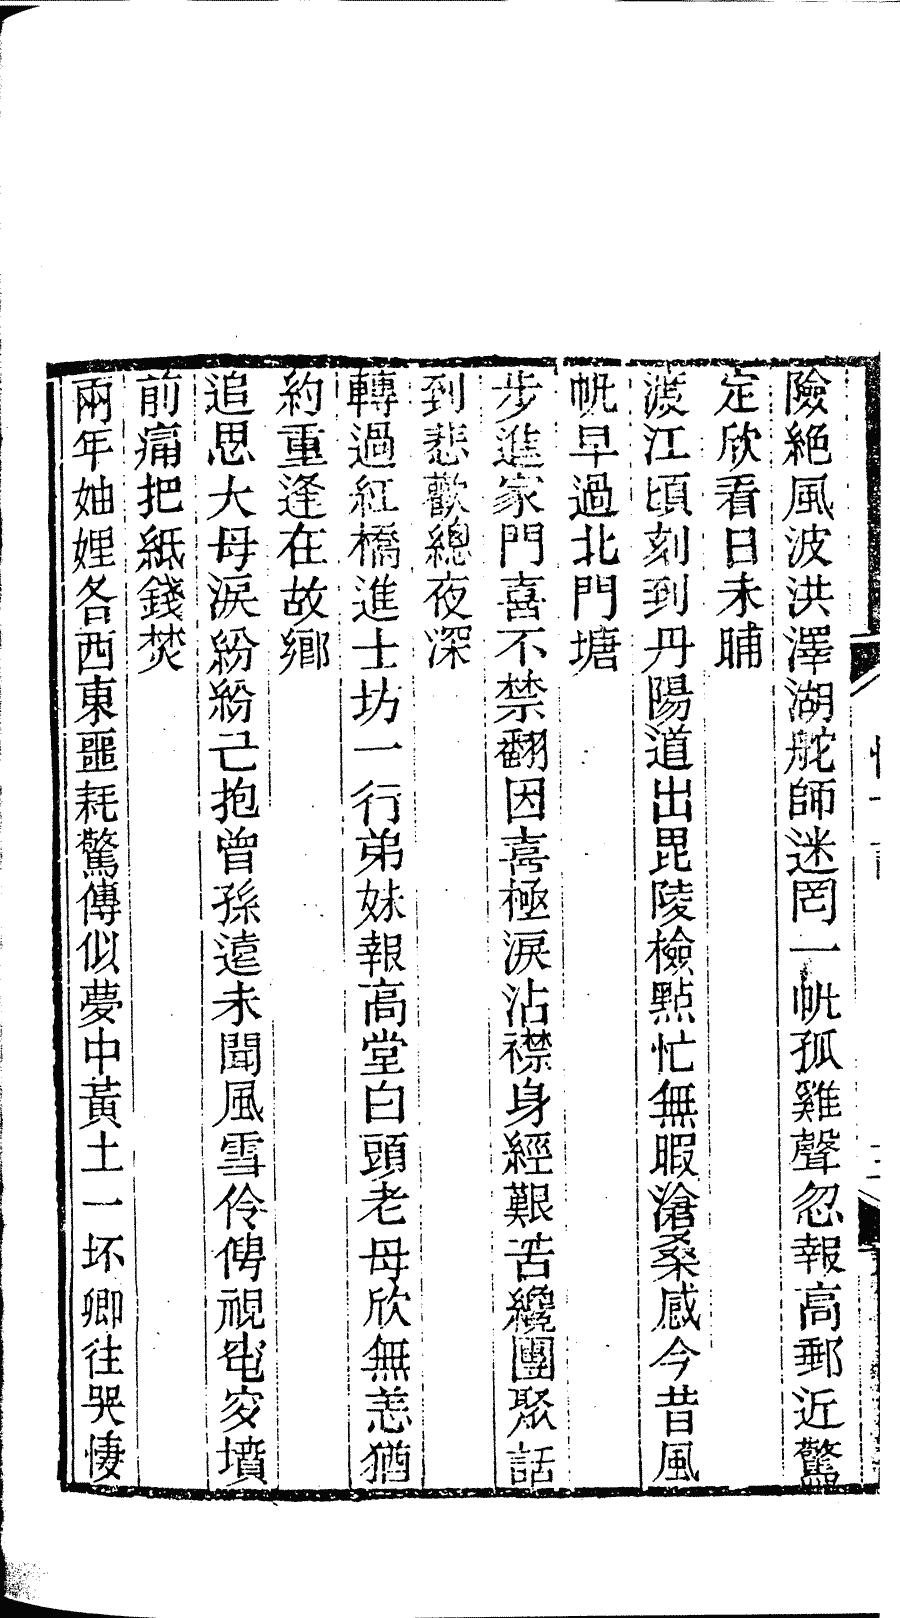 險絕風波洪澤湖舵師迷罔一帆孤雞聲忽報高郵近驚
定欣看日未晡
渡江頃刻到丹陽道出毘陵檢點忙無暇滄桑感今昔風
帆早過北門塘
步進家門喜不禁翻因喜極淚沾襟身經艱苦纔團聚話
到悲歡總夜深
轉過紅橋進士坊一行弟妹報高堂白頭老母欣無恙猶
約重逢在故鄉
追思大母淚紛紛已抱曾孫遠未聞風雪伶俜視窀穸墳
前痛把紙錢焚
兩年妯娌各西東噩耗驚傳似夢中黃土一坏卿往哭悽